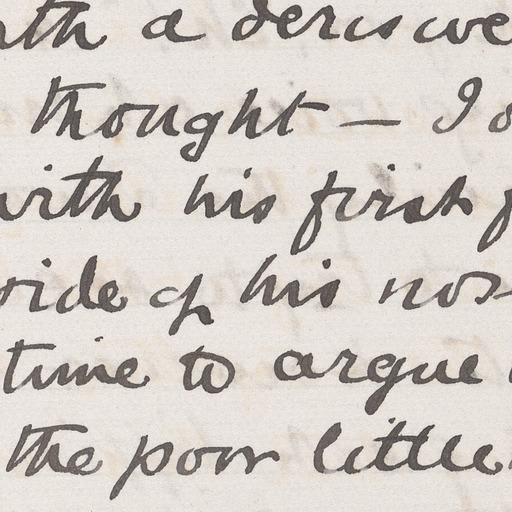 a
thought — I
with his first
side of his nos
time to argue
the poor little